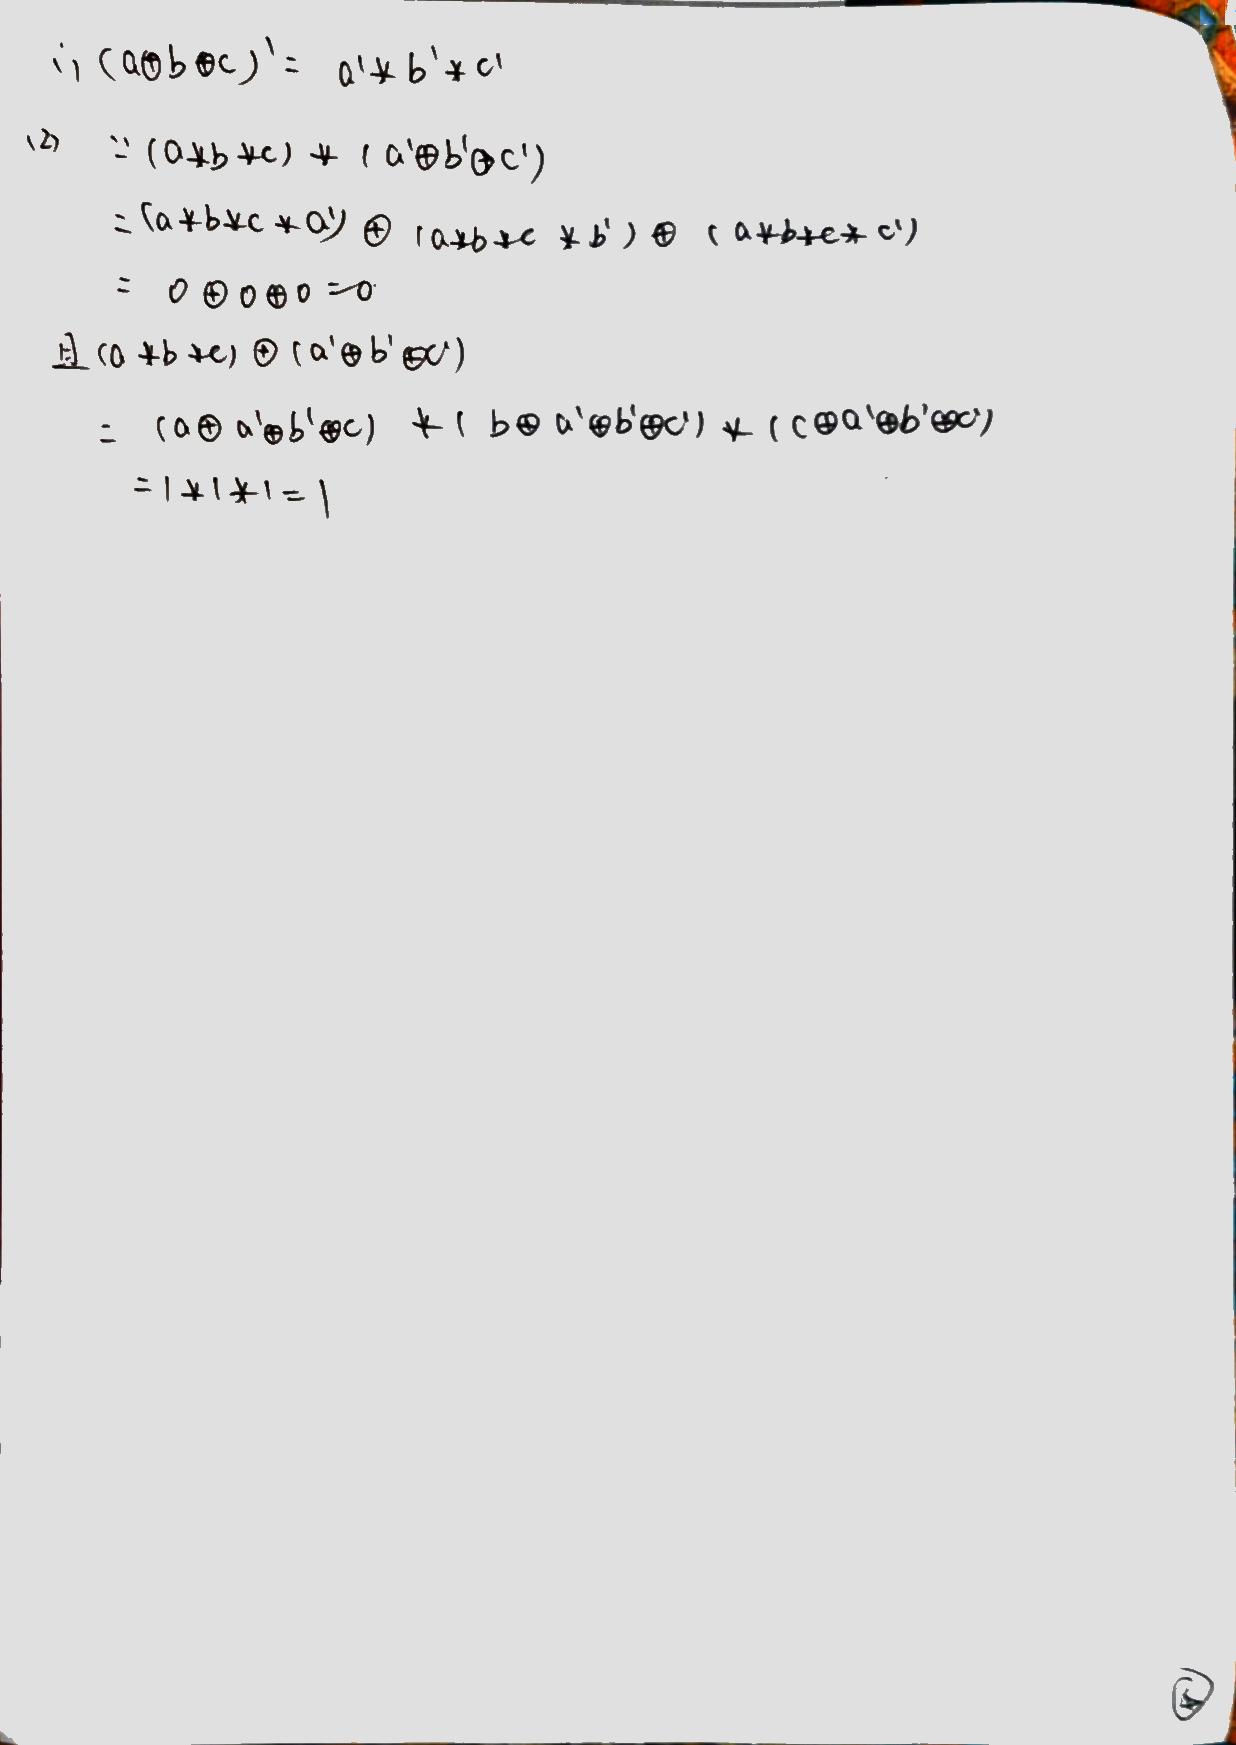 ∴ (a⊕b⊕c)' = a'*b'*c'
(2) ∵ (a*b*c) * (a'⊕b'⊕c')
= (a*b*c*a') ⊕ (a*b*c*b') ⊕ (a*b*c*c')
= 0⊕0⊕0=0
且 (a*b*c) ⊕ (a'⊕b'⊕c')
= (a⊕a'⊕b'⊕c) * (b⊕a'⊕b'⊕c') * (c⊕a'⊕b'⊕c')
= 1*1*1=1